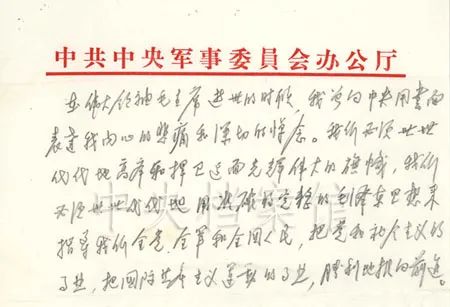 中共中央军事委員会办公厅
在伟大领袖毛主席逝世的时候,我曾向中央用书面
表达我内心的悲痛和深切的悼念。我们必须世世
代代地高举和捍卫这面光辉伟大的旗帜,我们
必须世世代代地用准确的完整的毛泽东思想来
指导我们全党、全军和全国人民,把党和社会主义的
事业,把国际共产主义运动的事业,胜利地推向前进。
中央档案馆